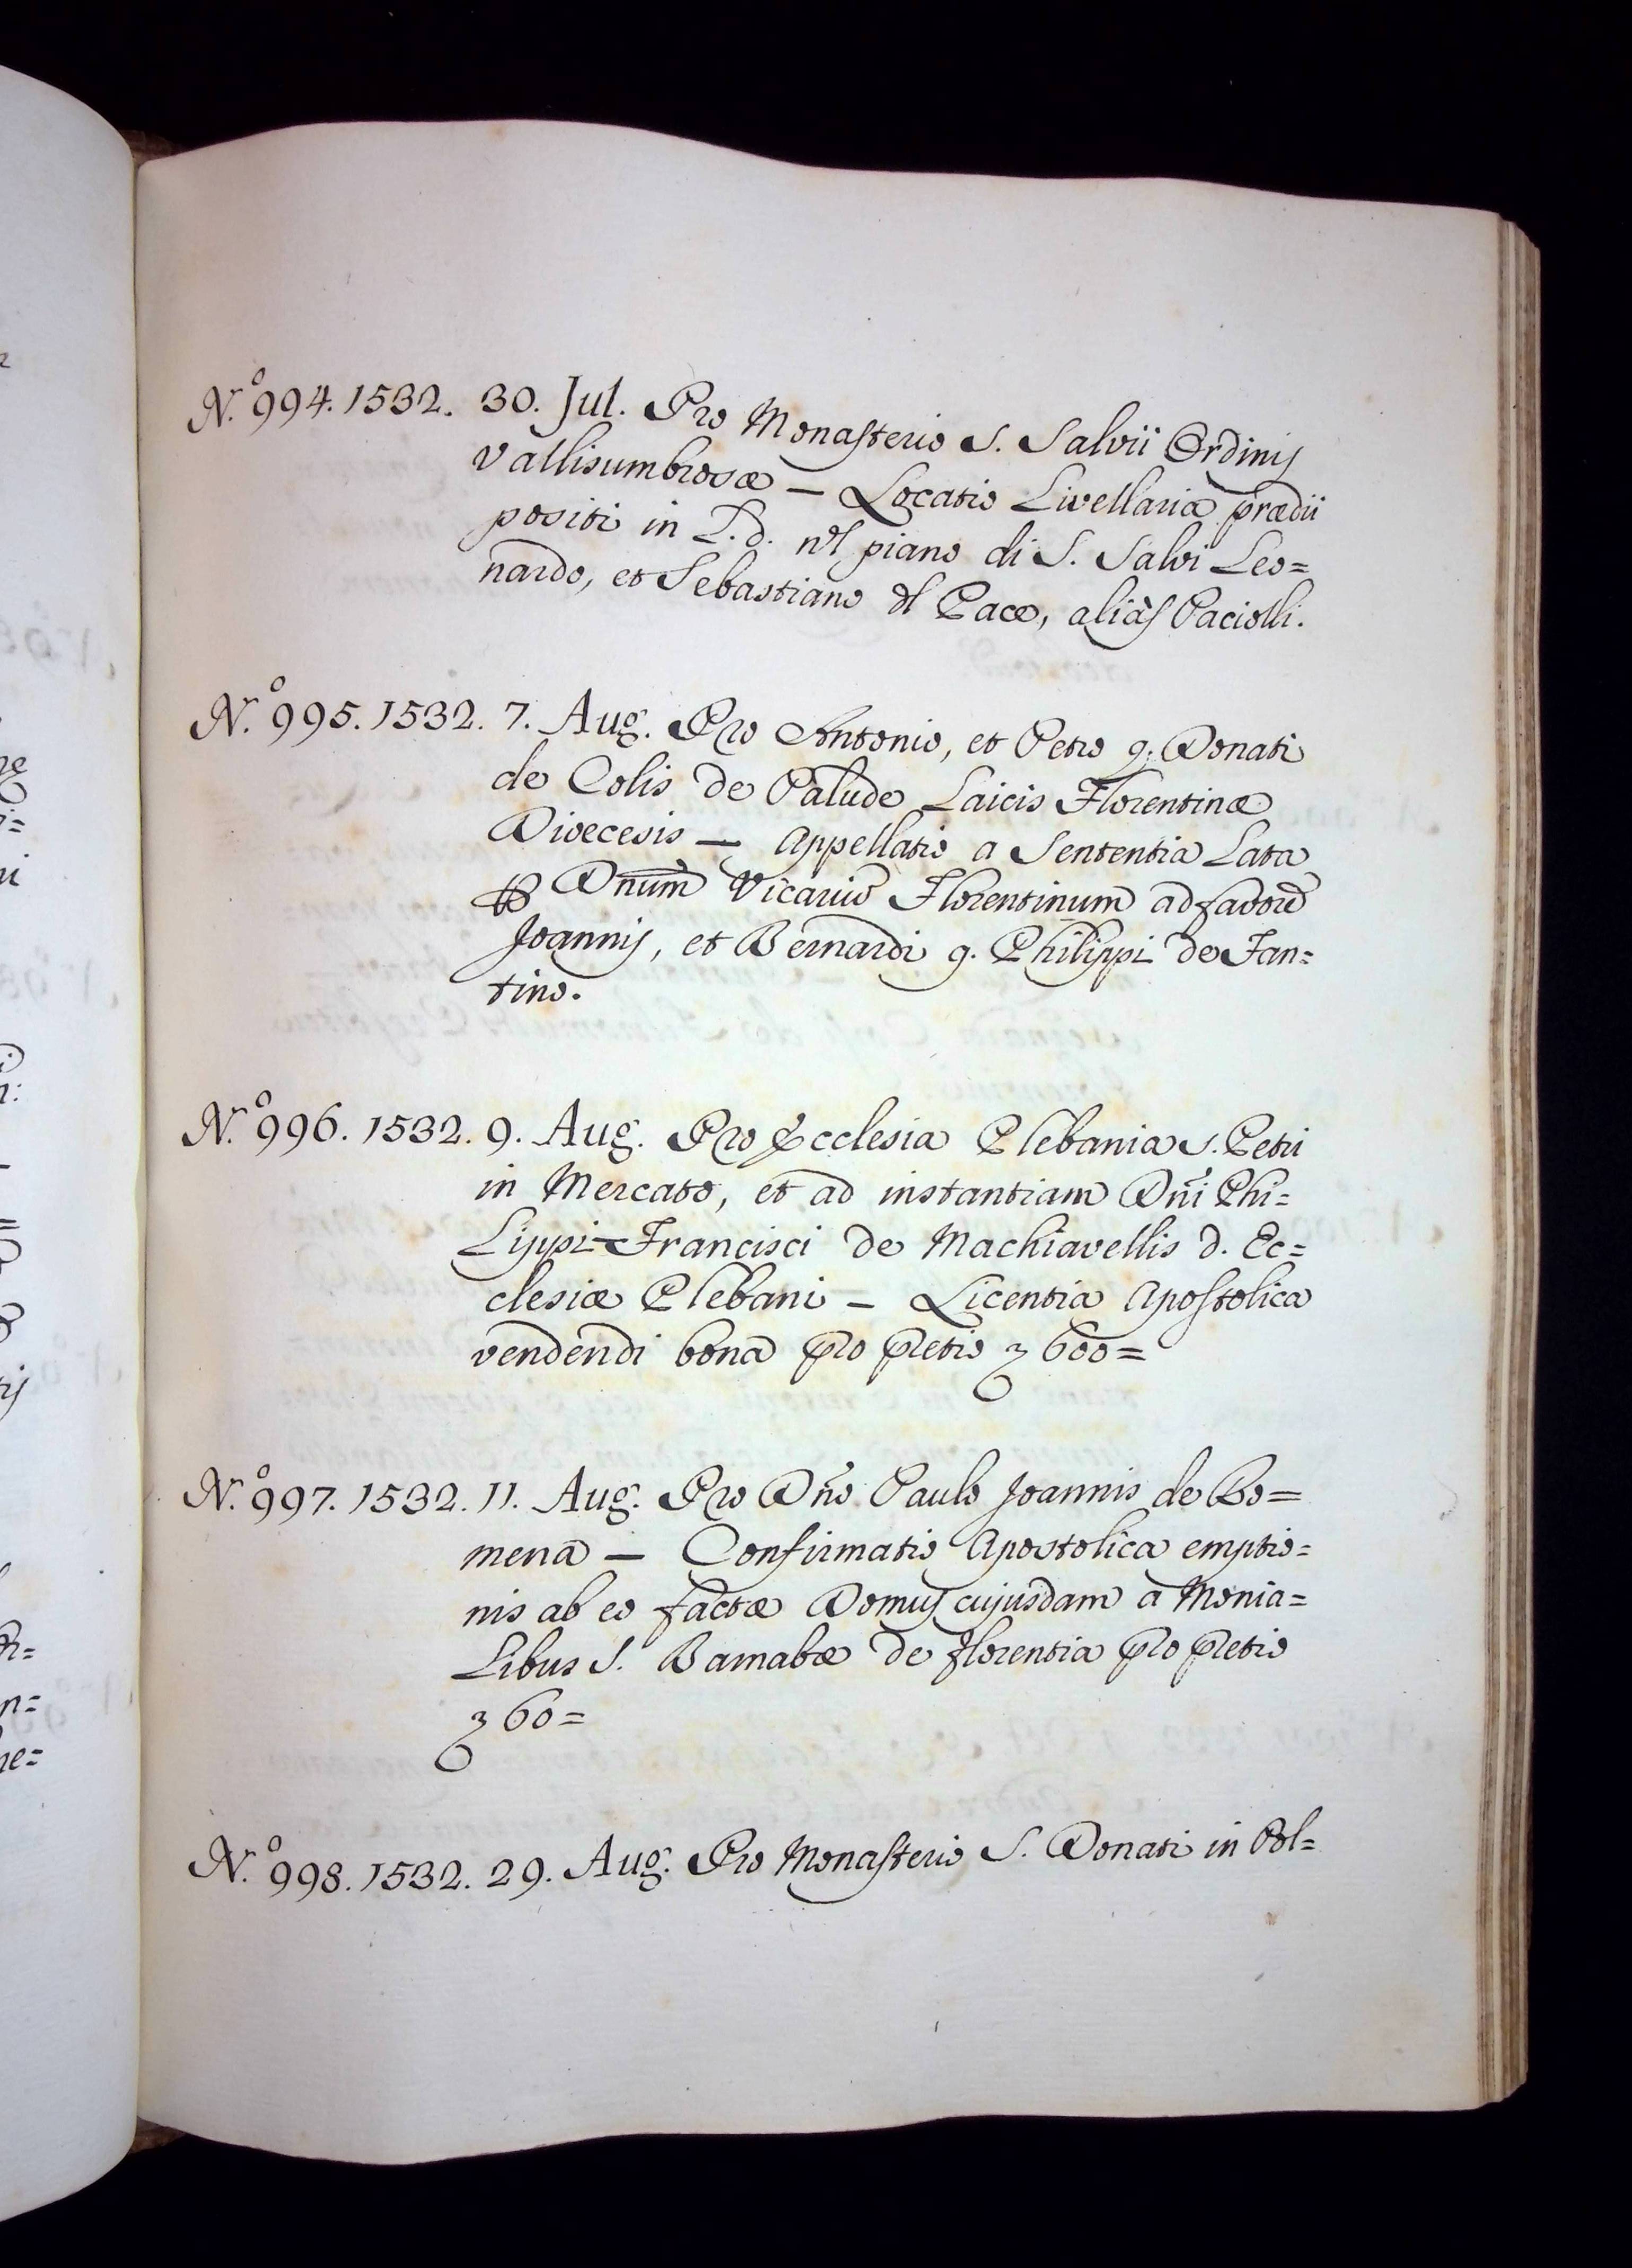 N.º 994. 1532. 30. Jul. Pro Monasterio S. Salvii Ordinis
Vallisumbrosæ — Locatio Livellaria prædii
positi in L. d. nel piano di S. Salvi Leo=
nardo, et Sebastiano del Pace, aliàs Paciolli.
N.º 995. 1532. 7. Aug. Pro Antonio, et Petro q. Donati
de Colis de Palude Laicis Florentinæ
Dioecesis — Appellatio a Sententia Lata
Dnum Vicariũ Florentinum ad favorẽ
Joannis, et Bernardi q. Philippi de Fan=
tino.
N.º 996. 1532. 9. Aug. Pro Ecclesia Plebania S. Petri
in Mercato, et ad instantiam Dñi Phi=
Lippi Francisci de Machiavellis d. Ec=
clesiæ Plebani — Licentia Apostolica
vendendi bona pro pretio 600=
N.º 997. 1532. 11. Aug. Pro Dño Paulo Joannis de Ro=
mena — Confirmatio Apostolica emptio=
nis ab eo factæ Domus cujusdam a Monia=
Libus S. Barnabæ de Florentia pro pretio
60=
N.º 998. 1532. 29. Aug. Pro Monasterio S. Donati in Pol=